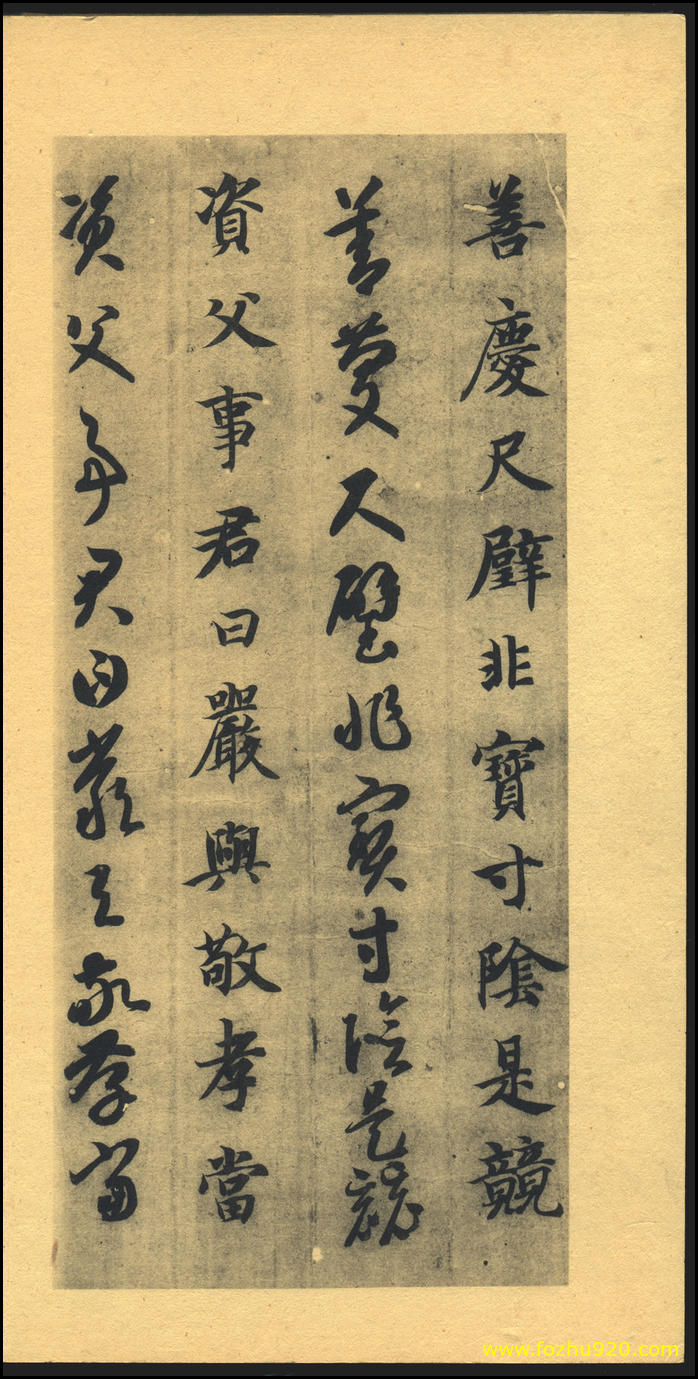 善慶尺璧非寶寸陰是競
善慶尺璧非寶寸陰是競
資父事君曰嚴與敬孝當
資父事君曰嚴與敬孝當
www.fozhu920.com